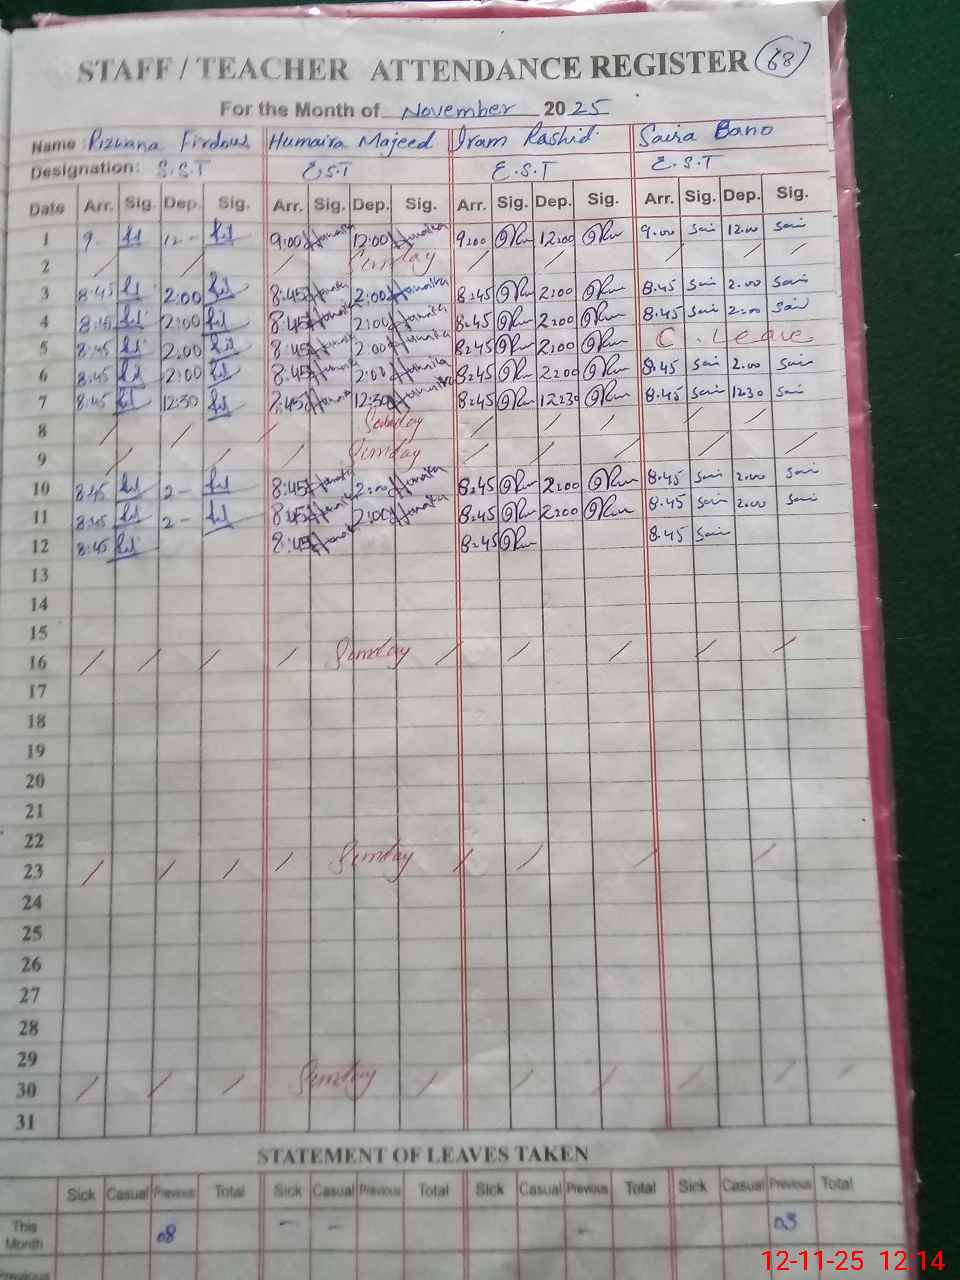 STAFF / TEACHER ATTENDANCE REGISTER 68
For the Month of November 2025
Name : Rizwana Firdous Humaira Majeed Iram Rashid Saira Bano
Designation: S.S.T E.S.T E.S.T E.S.T
Date Arr. Sig. Dep. Sig. Arr. Sig. Dep. Sig. Arr. Sig. Dep. Sig. Arr. Sig. Dep. Sig.
1 9- 12- 9:00 12:00 9:00 12:00 9.00 Sai 12.00 Sai
2 / / / Sunday / / / / /
3 8:45 2:00 8:45 2:00 8:45 2:00 8.45 Sai 2.00 Sai
4 8:45 2:00 8:45 2:00 8:45 2:00 8.45 Sai 2.00 Sai
5 8:45 2:00 8:45 2:00 8:45 2:00 C. Leave
6 8:45 2:00 8:45 2:00 8:45 2:00 8.45 Sai 2.00 Sai
7 8:45 12:30 8:45 12:30 8:45 12:30 8.45 Sai 1230 Sai
8 / / / / / / / /
9 / / / Sunday / / / / / /
10 8:45 2- 8:45 2:00 8:45 2:00 8.45 Sai 2.00 Sai
11 8:45 2- 8:45 2:00 8:45 2:00 8.45 Sai 2.00 Sai
12 8:45 8:45 8:45 8.45 Sai
13
14
15
16 / / / / Sunday / / / / /
17
18
19
20
21
22
23 / / / / Sunday / / / /
24
25
26
27
28
29
30 / / / Sunday / / / / / /
31
STATEMENT OF LEAVES TAKEN
Sick Casual Previous Total Sick Casual Previous Total Sick Casual Previous Total Sick Casual Previous Total
This Month 08 - - - 03
Previous
12-11-25 12:14